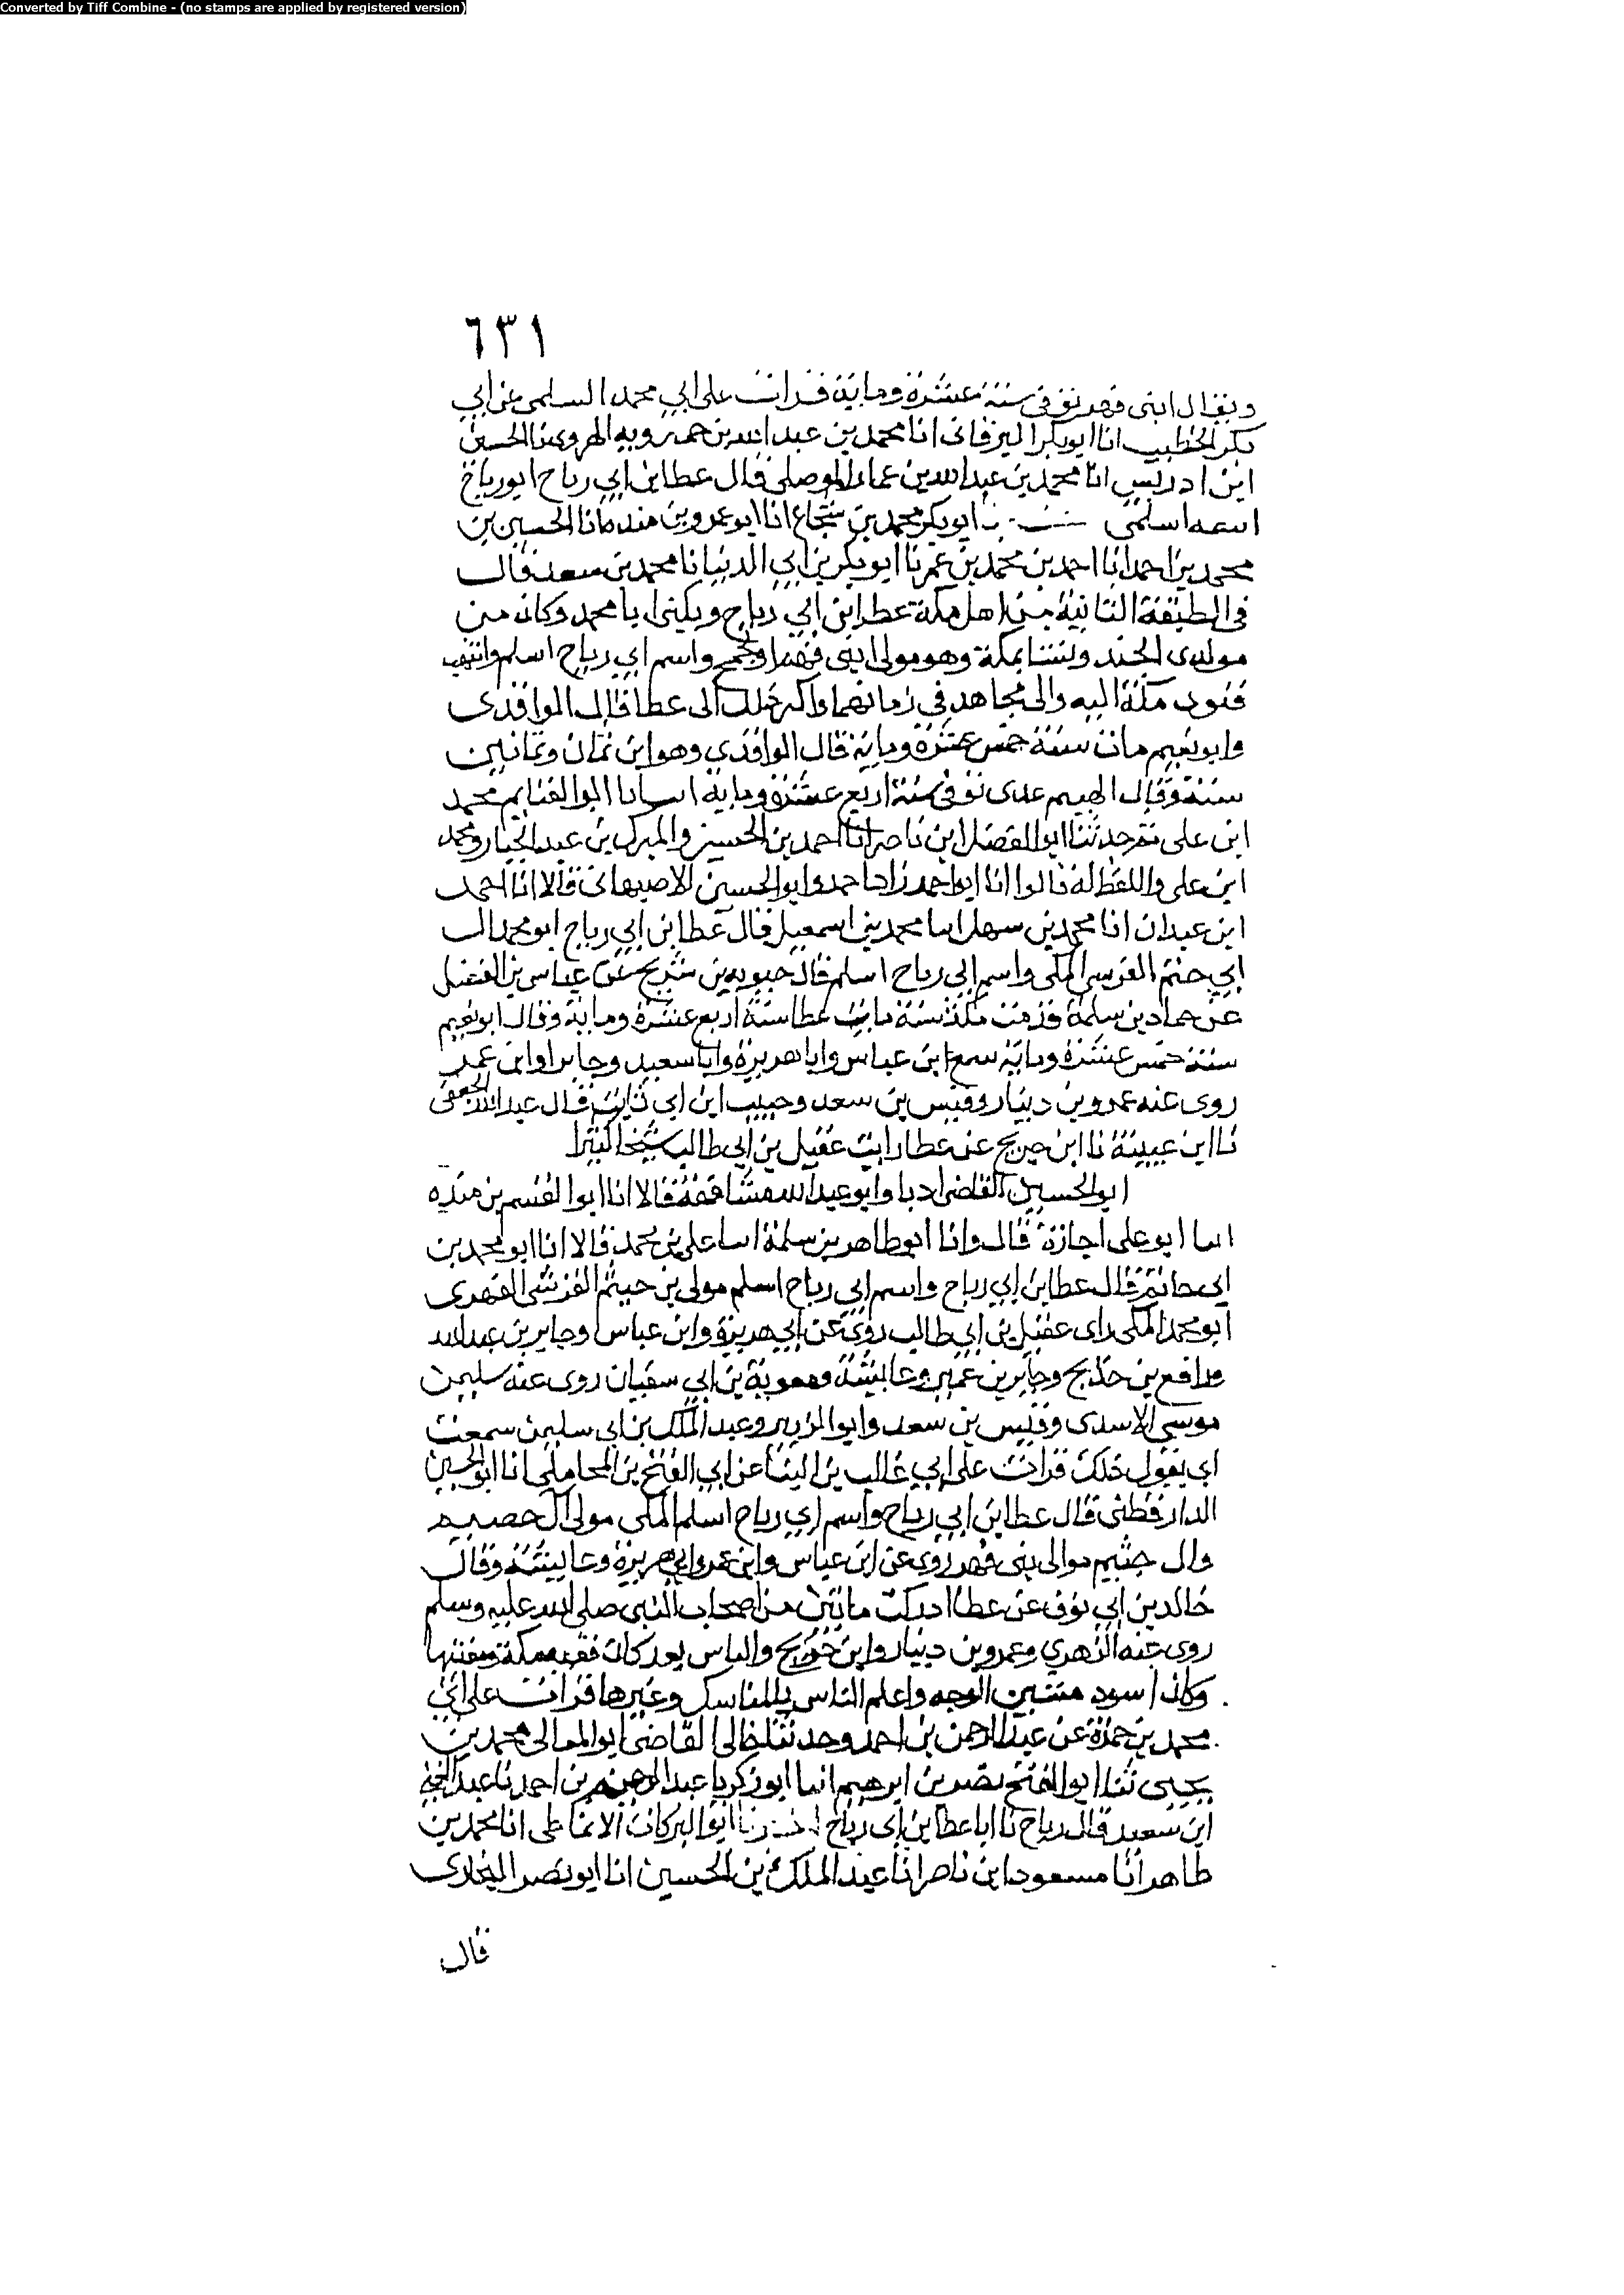 Converted by Tiff Combine - (no stamps are applied by registered version)
٦٣١
ويقال ابنى فهر توفى سنة عشرة ومايه قرات على ابي محمد السلمى عن ابي
بكر الخطيب انا ابو بكر البرقانى انا محمد بن عبد الله بن حميرويه الهروى نا الحسين
ابن ادريس انا محمد بن عبد الله بن عمار الموصلى قال عطا بن ابي رباح ابو رباح
اسمه اسلم ابو بكر محمد بن شجاع انا ابو عمرو بن منده انا الحسين بن
محمد بن احمد انا احمد بن محمد بن عمر نا ابو بكر بن ابي الدنيا نا محمد بن سعد قال
فى الطبقة الثانية من اهل مكة عطا بن ابي رباح ويكنى ابا محمد وكان من
مولدى الجند ونشا بمكة وهو مولى ابنى فهر او جمح واسم ابي رباح اسلم وانتهت
فتوى مكة اليه والى مجاهد في زمانهما واكثر ذلك الى عطا قال الواقدى
وابو نعيم مات سنة خمس عشرة ومايه قال الواقدي وهو ابن ثمان وثمانين
سنة وقال الهيثم عدى توفى سنة اربع عشرة ومايه انبانا ابو الغنايم محمد
ابن على ثم حدثنا ابو الفضل ابن ناصر انا احمد بن الحسين والمبرك بن عبد الجبار ومحمد
ابن على واللفظ له قالوا انا ابو احمد زاد احمد وابو الحسين الاصبهانى قالا انا احمد
ابن عبدان انا محمد بن سهل انبا محمد بن اسمعيل قال عطا بن ابي رباح ابو محمد ال
ابي خثيم القرسى المكى واسم ابي رباح اسلم قال حيويه بن شريح عن عباس بن الفضل
عن حماد بن سلمة قدمت مكة سنة مات عطا سنة اربع عشرة ومايه وقال ابو نعيم
سنة خمس عشرة ومايه سمع ابن عباس وابا هريرة وابا سعيد وجابرا وابن عمر
روى عنه عمرو بن دينار وقيس بن سعد وحبيب ابن ابي ثابت قال عبد الله الجعفى
نا ابن عيينة نا ابن جريج عن عطا رايت عقيل بن ابي طالب شيخا كبيرا
ابو الحسين القاضى اذنا وابو عبد الله مشافهة قالا انا ابو القسم بن منده
انبا ابو على اجازة قال وانا ابو طاهر بن سلمة انبا على بن محمد قالا انا ابو محمد بن
ابي حاتم قال عطا بن ابي رباح واسم ابي رباح اسلم مولى بن خيثم القرشى الفهرى
ابو محمد المكى راى عقيل بن ابي طالب روى عن ابي هريرة وابن عباس وجابر بن عبد الله
ورافع بن خديج وجابر بن عمير وعايشة ومعوية بن ابي سفيان روى عنه سليمن
موسى الاسدى وقيس بن سعد وابو الزبير وعبد الملك بن ابي سليمن سمعت
ابي يقول ذلك قرات على ابي غالب بن البنا عن ابي الفتح بن المحاملى انا ابو الحسين
الدارقطنى قال عطا بن ابي رباح واسم ابي رباح اسلم المكى مولى ال
وال خثيم موالى بنى فهر روى عن ابن عباس وابن عمر وابي هريرة وعايشة وقال
خالد بن ابي نوف عن عطا ادركت مائتين من اصحاب النبى صلى الله عليه وسلم
روى عنه الزهري وعمرو بن دينار وابن جريج والناس بعد كان فقيه مكة ومفتيها
وكان اسود مشين الوجه واعلم الناس بالمناسك وغيرها قرات على ابي
محمد بن حمزة عن عبد الرحمن بن احمد وحدثنا خالى القاضى ابو المعالى محمد بن
يحيى ثنا ابو الفتح نصر بن ابرهيم انبا ابو زكريا عبد الرحيم بن احمد نا عبد الغنى
ابن سعيد قال رباح نا ابا عطا بن ابي رباح اخبرنا ابو البركات الانماطى انا محمد بن
طاهر انا مسعود ابن ناصر انا عبد الملك بن الحسين انا ابو نصر البخارى
قال